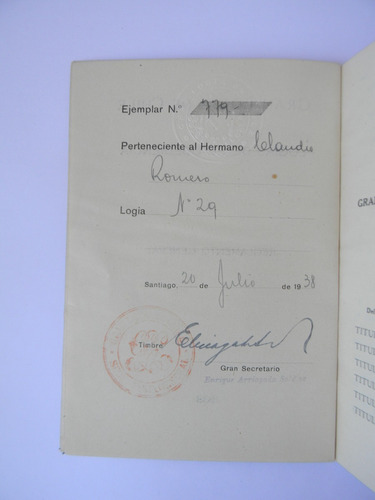 Ejemplar N.º 779-
Perteneciente al Hermano Claudio
Romero
Logia Nº 29
Santiago, 20 de Julio de 1938
Timbre
Gran Secretario
Enrique
GRA
De
TITUL
TITUL
TITUL
TITUL
TITUL